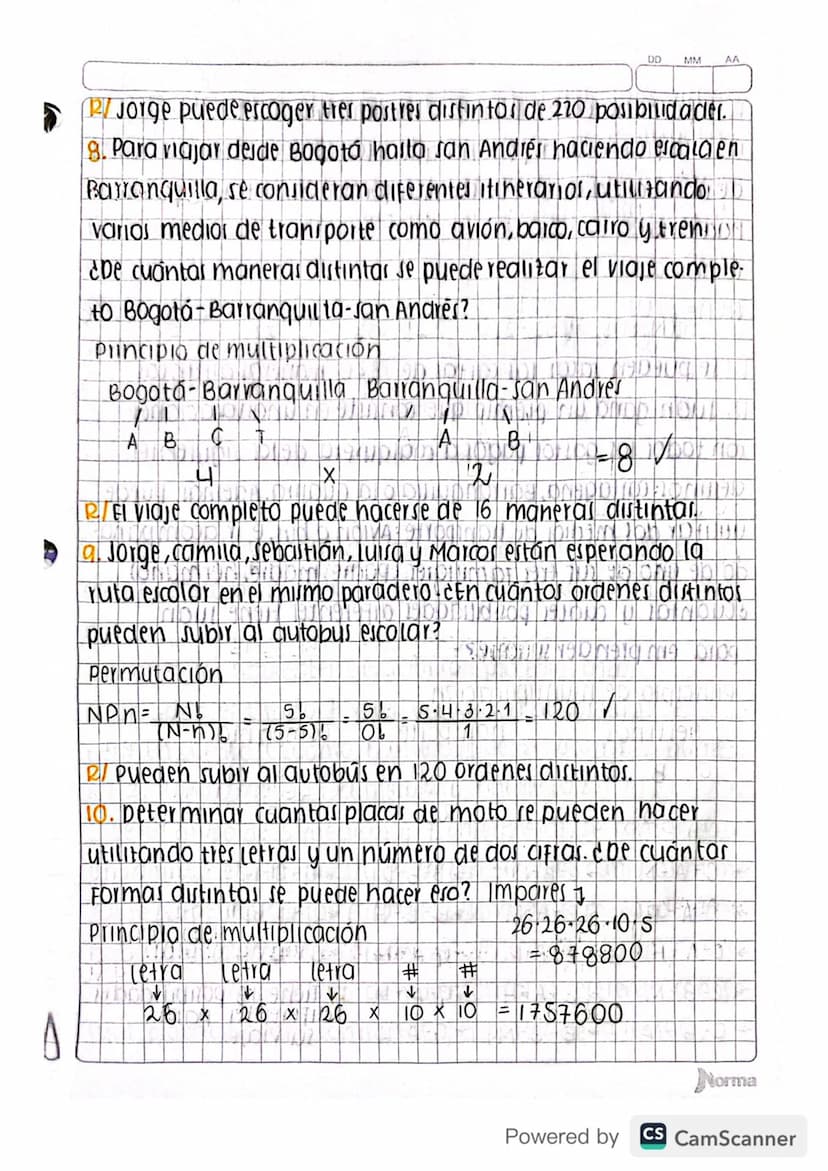 DD MM AA
R/ Jorge puede escoger tres postres distintos de 220 posibilidades.
8. Para viajar desde Bogotá hasta san Andrés haciendo escala en
Barranquilla, se consideran diferentes itinerarios, utilizando
varios medios de transporte como avión, barco, carro y tren
¿De cuántas maneras distintas se puede realizar el viaje comple-
to Bogotá-Barranquilla-san Andrés?
Principio de multiplicación
Bogotá-Barranquilla Barranquilla-san Andrés
A B C T A B
4 x 2 = 8 ✓
R/ El viaje completo puede hacerse de 16 maneras distintas.
9. Jorge, camila, sebastián, luisa y Marcos están esperando la
ruta escolar en el mismo paradero. ¿En cuántos ordenes distintos
pueden subir al autobus escolar?
Permutación
NPn = N!/(N-n)! = 5!/(5-5)! = 5!/0! = 5·4·3·2·1/1 = 120 ✓
R/ Pueden subir al autobús en 120 ordenes distintos.
10. Determinar cuantas placas de moto se pueden hacer
utilizando tres letras y un número de dos cifras. ¿De cuántas
formas distintas se puede hacer eso? Impares ↴
Principio de multiplicación 26·26·26·10·5
= 878800
letra letra letra # #
↓ ↓ ↓ ↓ ↓
26 x 26 x 26 x 10 x 10 = 1757600
Norma
Powered by CS CamScanner